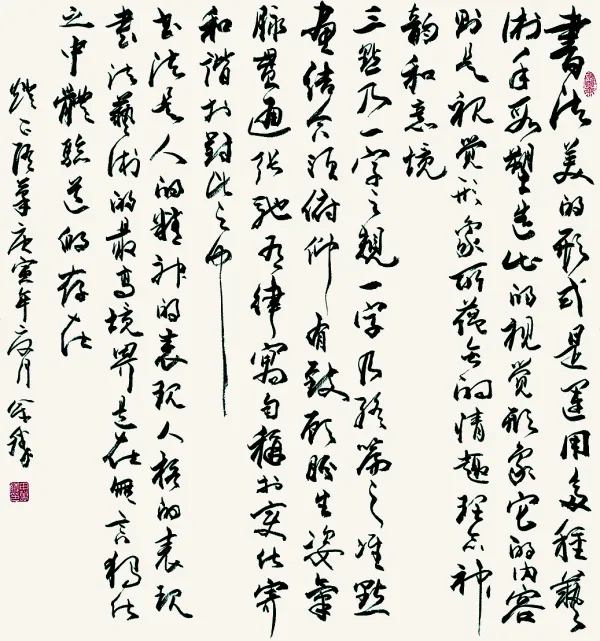 書法美的形式是運用多種藝
術手段塑造出的視覺形象它的內容
則是視覺形象所蘊含的情趣理念神
韵和意境
三點乃一字之規一字乃終篇之准點
畫結合須俯仰有致顧盼生姿氣
脉貫通張弛有律寓勻稱於變化寄
和諧於對比之中
書法是人的精神的表現人格的表現
書法藝術的最高境界是在無言獨化
之中體驗道的存在
燈下隨筆庚寅年夏月余